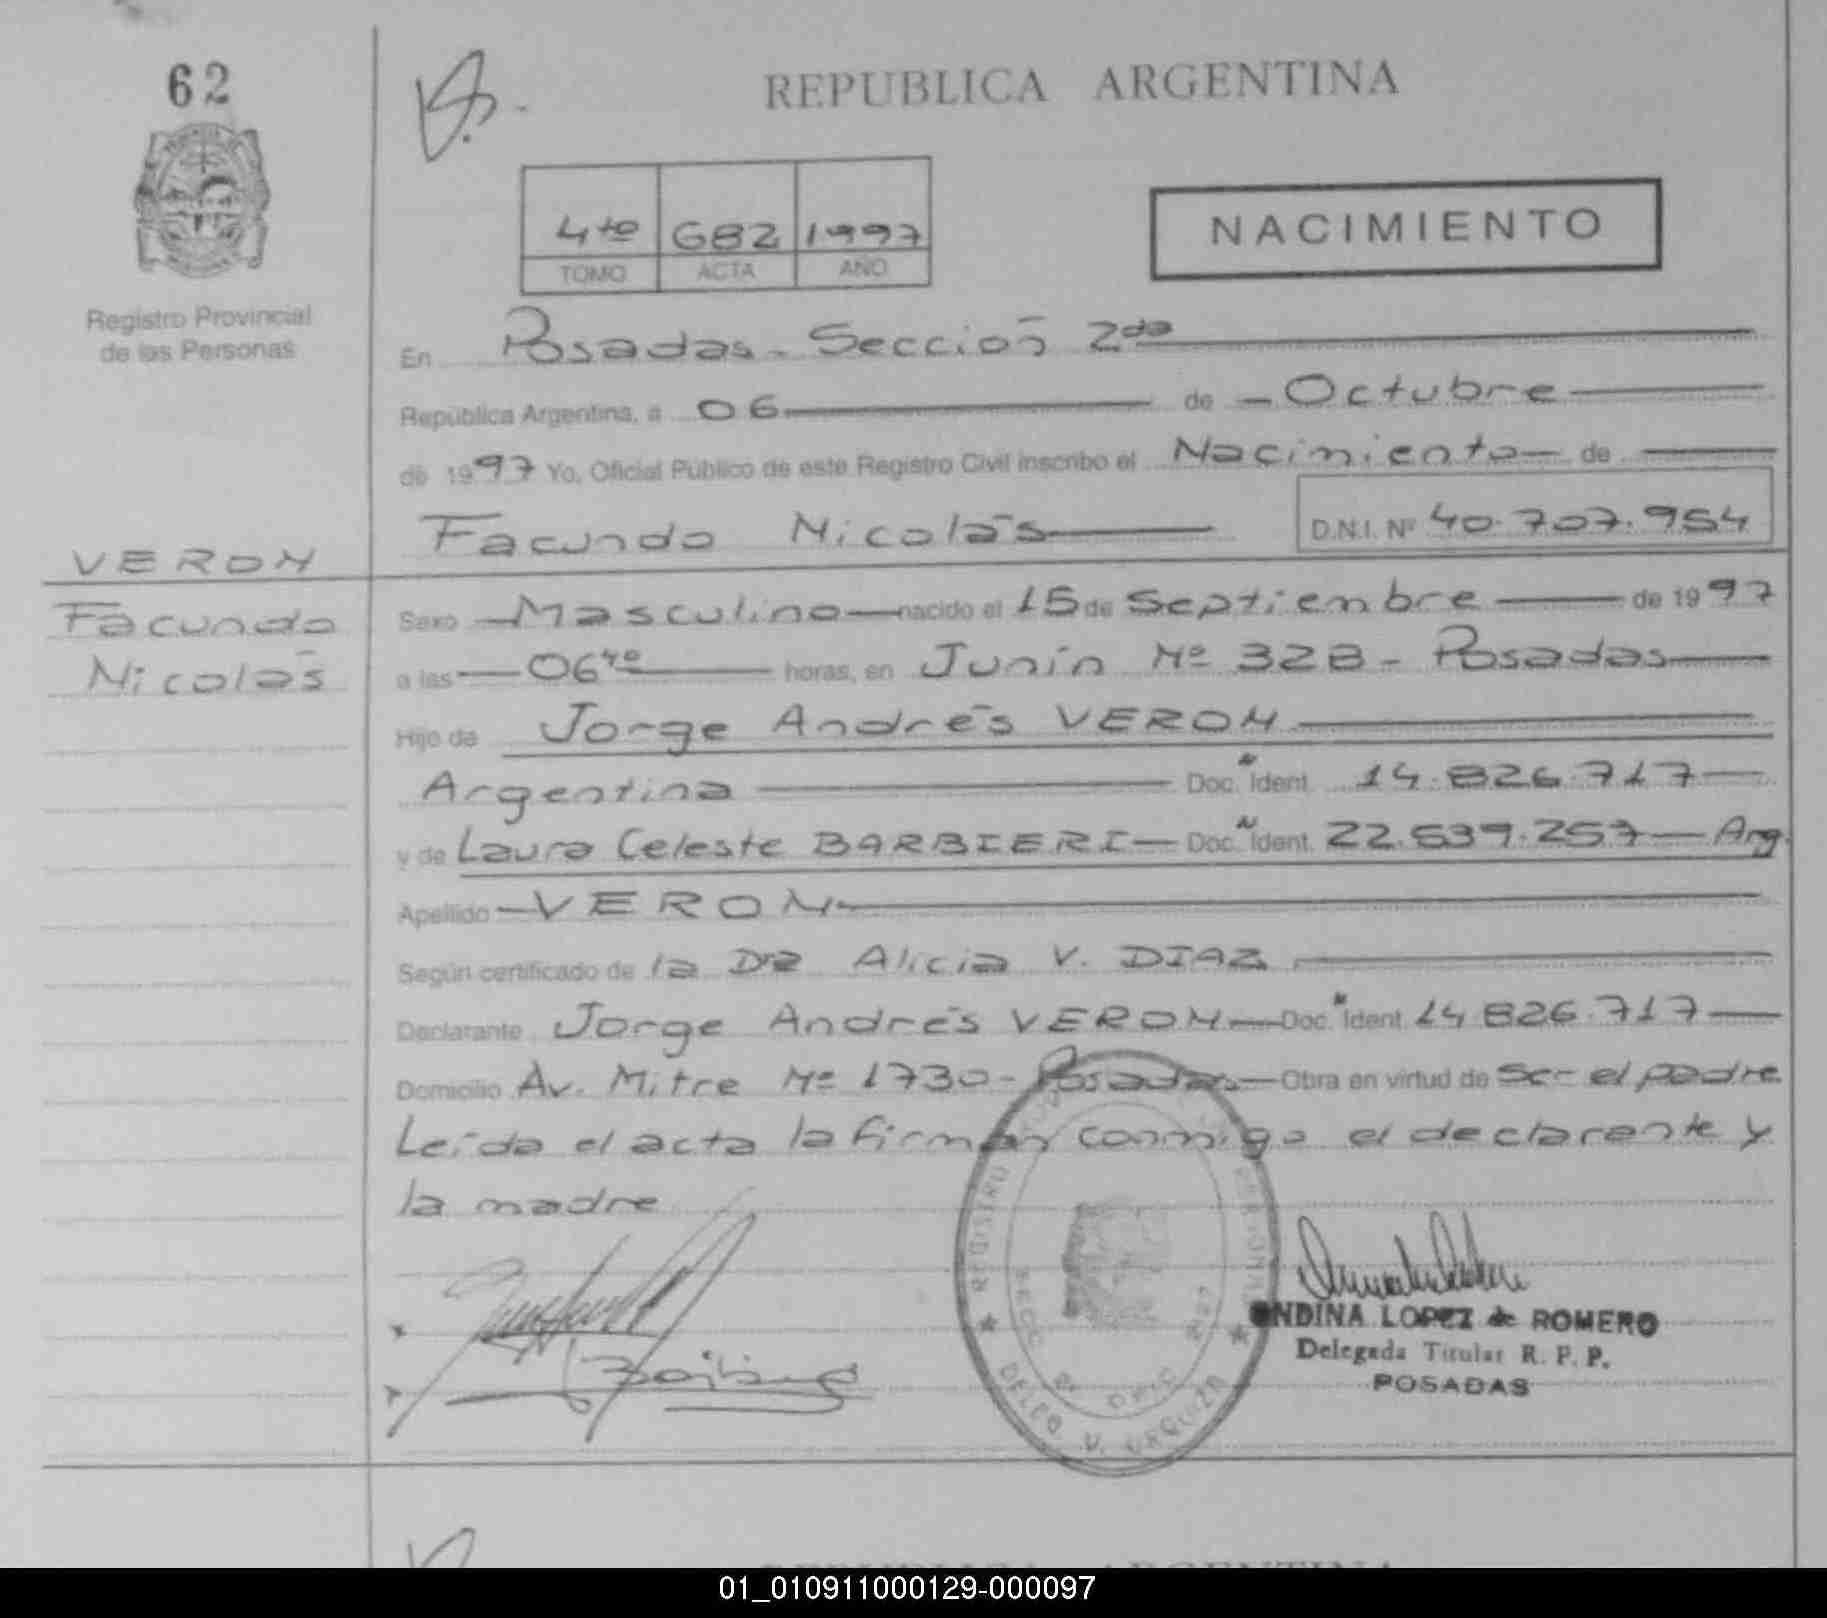 62
REPUBLICA ARGENTINA
4to 682 1997
TOMO ACTA AÑO
NACIMIENTO
Registro Provincial
de las Personas
En Posadas - Sección 2da
República Argentina, a 06 de - Octubre
de 1997 Yo, Oficial Público de este Registro Civil inscribo el Nacimiento de
Facundo Nicolás D.N.I. Nº 40.707.954
VERON
Facundo
Nicolás
Sexo Masculino nacido el 15 de Septiembre de 1997
a las 06 40 horas, en Junín Nº 328 - Posadas
Hijo de Jorge Andrés VERON
Argentina Doc. Ident. 14.826.717
y de Laura Celeste BARBIERI Doc. Ident. 22.539.257 Arg.
Apellido VERON
Según certificado de la Dra Alicia V. DIAZ
Declarante Jorge Andrés VERON Doc. Ident. 14 826.717
Domicilio Av. Mitre Nº 1730 - Posadas Obra en virtud de ser el padre
Leída el acta la firman conmigo el declarante y
la madre
REGISTRO
DELEG V. URQUIZA
ONDINA LOPEZ de ROMERO
Delegada Titular R. P. P.
POSADAS
01_010911000129-000097